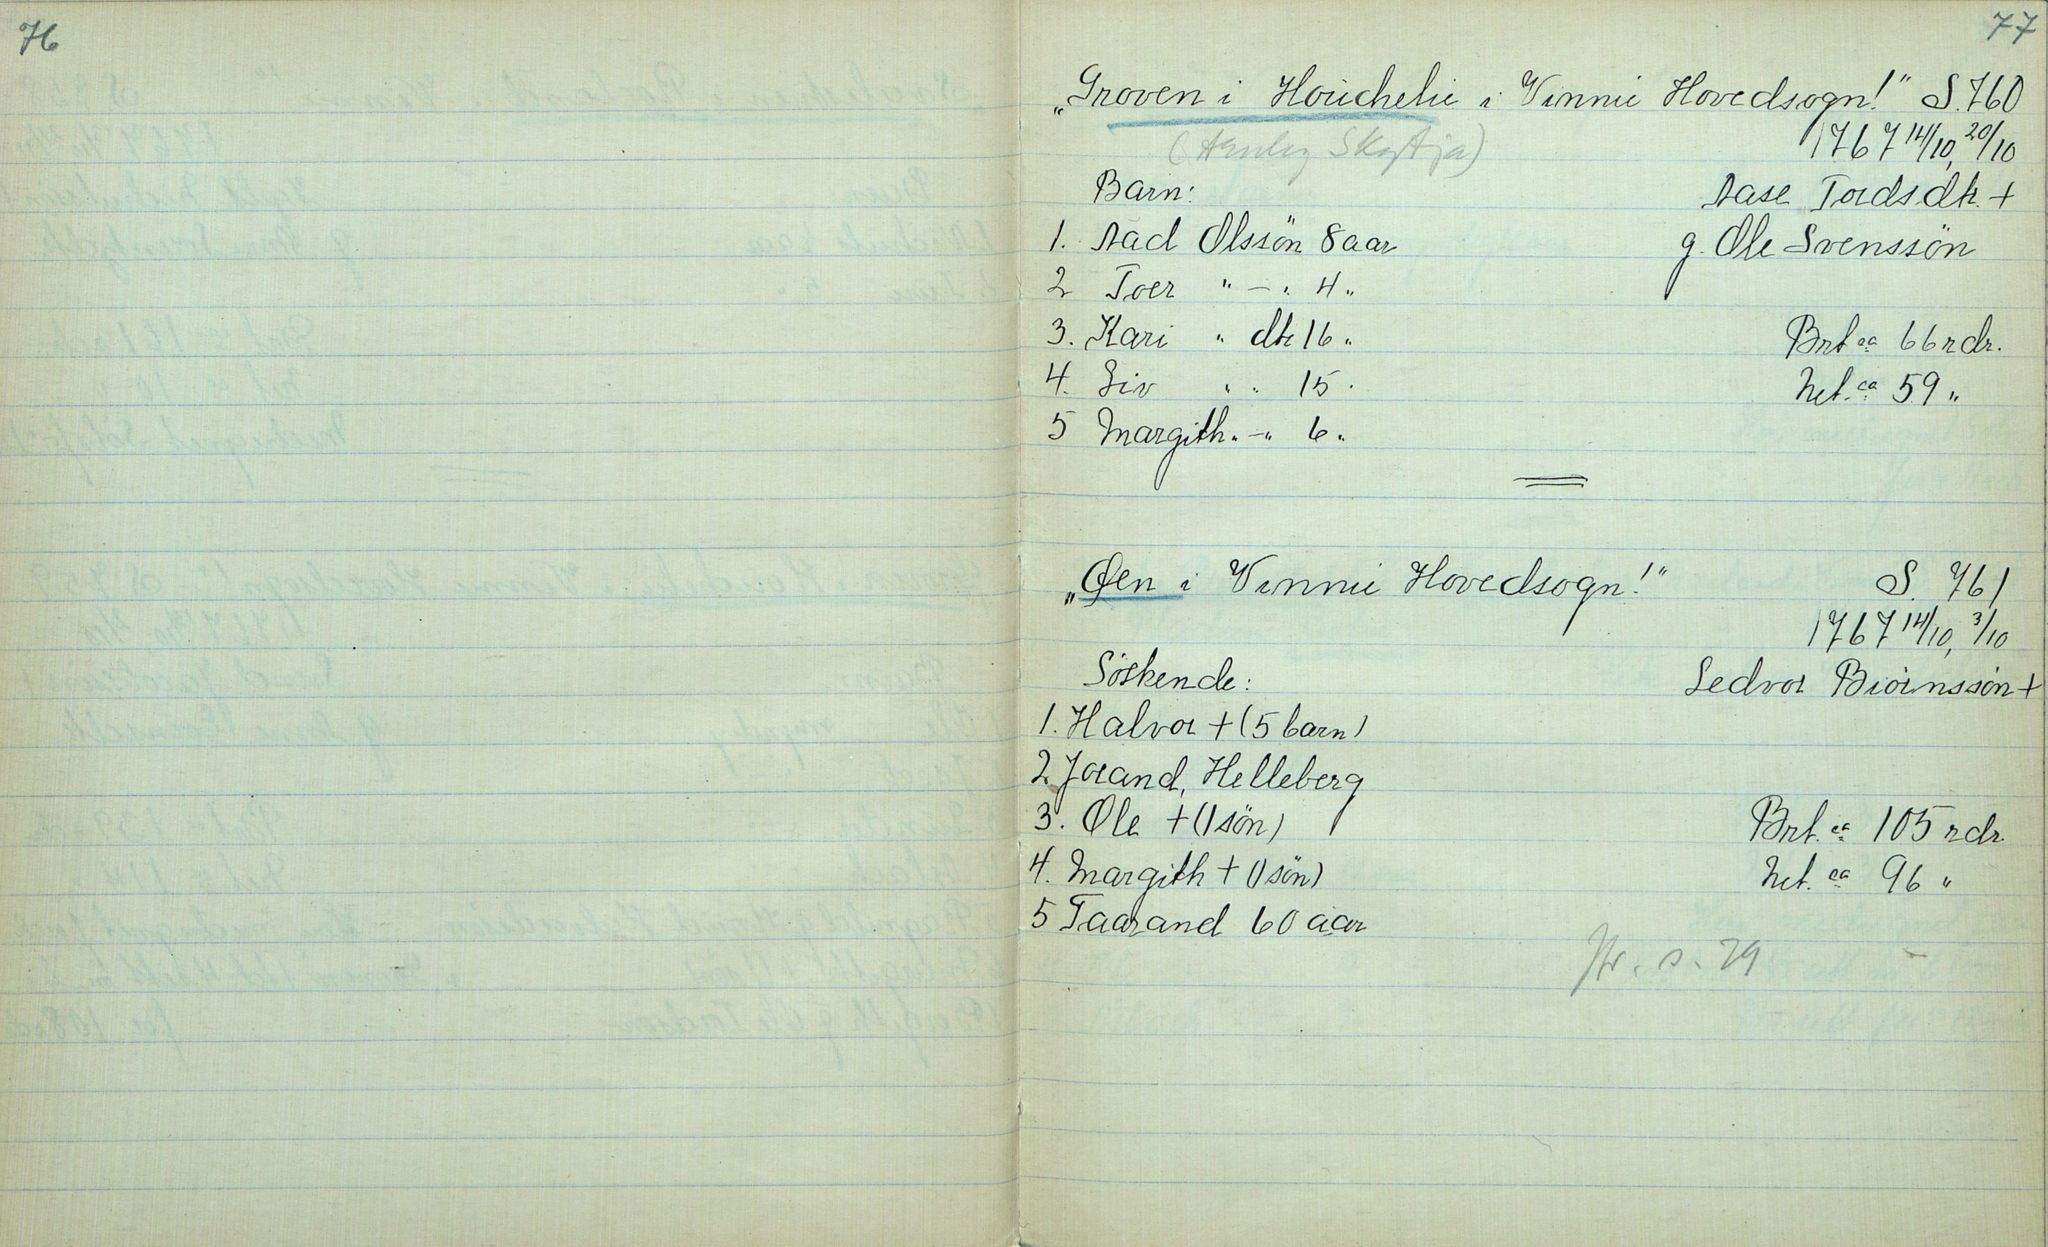 76
77
„Groven i Houchelie i Vinnie Hovedsogn!" S. 760
1767 14/10, 20/10
Barn: Aase Tordsdtr. +
1. Aad Olssön 8 aar g. Ole Svenssön
2 Toer " — " 4 "
3. Kari " dtr 16 " Brt ca 66 rdr.
4. Liv " " 15 " Net. ca 59 "
5 Margith " — " 6 "
„Øen i Vinnie Hovedsogn!" S. 761
1767 14/10, 3/10
Söskende: Sedvor Biörnssön +
1. Halvor + (5 barn)
2. Jorand, Helleberg
3. Ole + (1 sön) Brt. ca 105 rdr.
4. Margith + (1 sön) Net. ca 96 "
5 Taarand 60 aar
s. 79